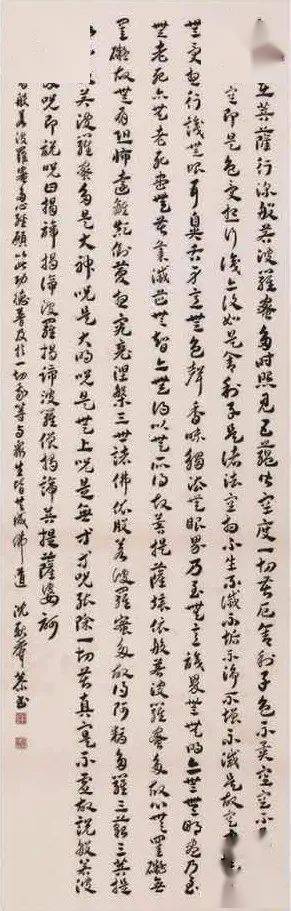 在菩薩行深般若波羅蜜多時照見五蘊皆空度一切苦厄舍利子色不異空空不
空即是色受想行識亦復如是舍利子是諸法空相不生不滅不垢不淨不增不減是故空中
無受想行識無眼耳鼻舌身意無色聲香味觸法無眼界乃至無意識界無無明亦無無明盡乃至
無老死亦無老死盡無苦集滅道無智亦無得以無所得故菩提薩埵依般若波羅蜜多故心無罣礙無
罣礙故無有恐怖遠離顛倒夢想究竟涅槃三世諸佛依般若波羅蜜多故得阿耨多羅三藐三菩提
若波羅蜜多是大神咒是大明咒是無上咒是無等等咒能除一切苦真實不虛故說般若波
咒即說咒曰揭諦揭諦波羅揭諦波羅僧揭諦菩提薩婆訶
般若波羅蜜多心經願以此功德普及於一切我等與眾生皆共成佛道 沈